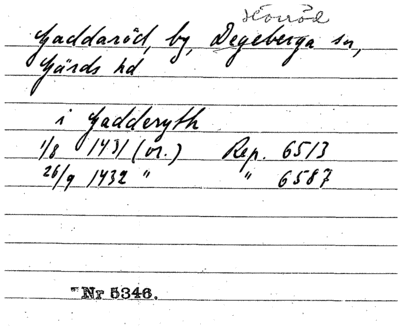 Hörröd
Gaddaröd, by, Degeberga sn,
Gärds hd
i Gadderyth
1/8 1431 (or.) Rep. 6513
26/9 1432 " " 6587
"Nr 5346.